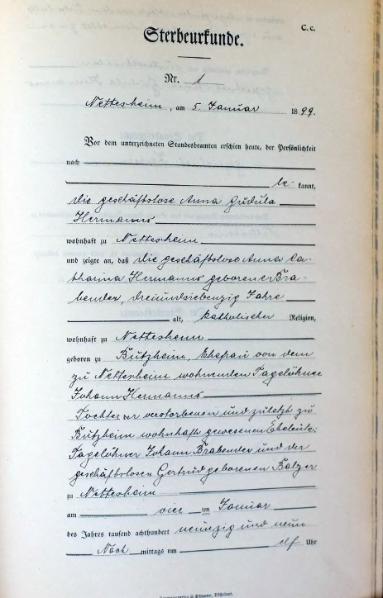 C. c.
Sterbeurkunde.
Nr. 1
Nettesheim, am 5. Januar 1899.
Vor dem unterzeichneten Standesbeamten erschien heute, der Persönlichkeit
nach
be kannt,
die geschäftslose Anna Gudula
Hermanns
wohnhaft zu Nettesheim
und zeigte an, daß die geschäftslose Anna Ca-
tharina Hermanns geborene Bra-
bender, dreiundsiebenzig Jahre
alt, katholischer Religion,
wohnhaft zu Nettesheim
geboren zu Butzheim, Ehefrau von dem
zu Nettesheim wohnenden Tagelöhner
Johann Hermanns
Tochter der verstorbenen und zuletzt zu
Butzheim wohnhaft gewesenen Eheleute
Tagelöhner Johann Brabender und der
geschäftslosen Gertrud geborenen Balzer
zu Nettesheim
am vier ten Januar
des Jahres tausend achthundert neunzig und neun
Nach mittags um elf Uhr